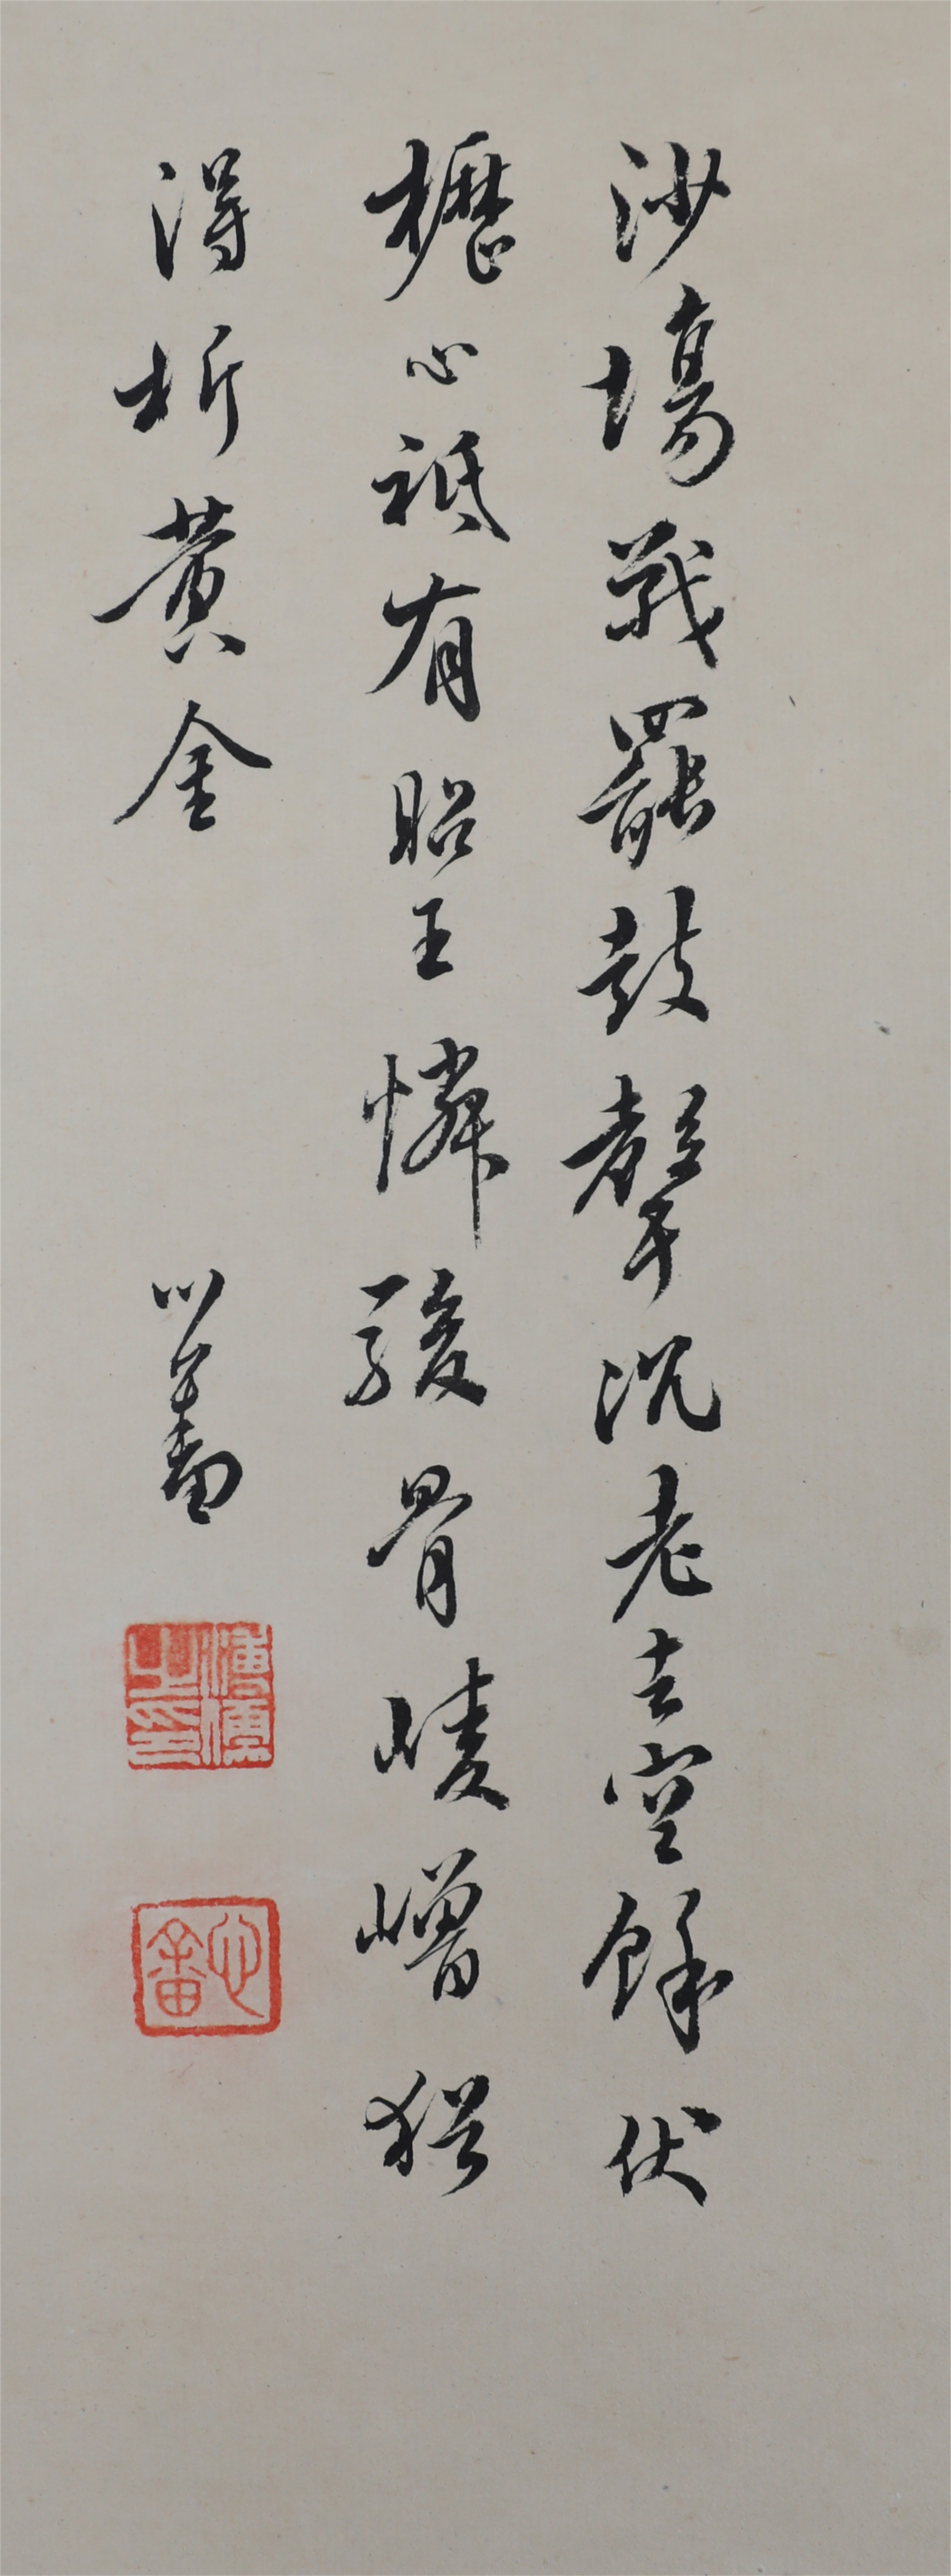 沙場戰罷鼓聲沉老去空餘伏
櫪心祗有昭王憐駿骨崚嶒猶
得折黃金
心畬
溥儒之印
心畬